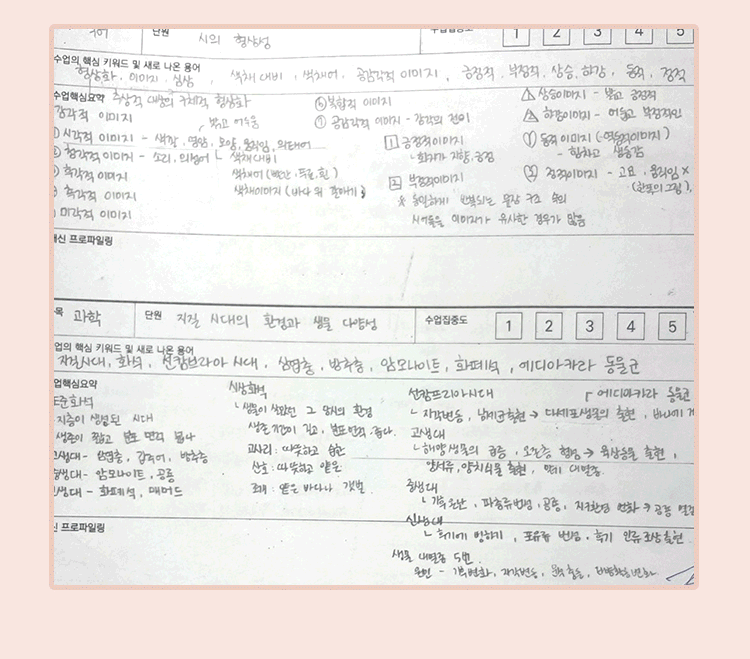 단원 시의 형상성
수업집중도 1 2 3 4 5
수업의 핵심 키워드 및 새로 나온 용어
형상화, 이미지, 심상, 색채 대비, 색채어, 공감각적 이미지, 긍정적, 부정적, 상승, 하강, 동적, 정적
수업핵심요약 추상적 대상의 구체적 형상화
감각적 이미지
시각적 이미지 - 색깔, 명암, 모양, 움직임, 의태어
밝고 어두움
청각적 이미지 - 소리, 의성어
색채대비
색채어 (빨간, 푸른, 흰)
색채이미지 (바다 위 갈매기)
후각적 이미지
촉각적 이미지
미각적 이미지
⑥ 복합적 이미지
⑦ 공감각적 이미지 - 감각의 전이
1 긍정적이미지
└ 화자가 지향, 긍정
2 부정적이미지
※ 동일하게 반복되는 문장 구조 속의
시어들은 이미지가 유사한 경우가 많음
상승이미지 - 밝고 긍정적
하강이미지 - 어둡고 부정적인
동적 이미지 (=역동적이미지)
- 힘차고 생동감
정적이미지 - 고요, 움직임 ×
(한폭의 그림)
신 프로파일링
목 과학
단원 지질 시대의 환경과 생물 다양성
수업집중도 1 2 3 4 5
업의 핵심 키워드 및 새로 나온 용어
지질시대, 화석, 선캄브리아 시대, 삼엽충, 방추충, 암모나이트, 화폐석, 에디아카라 동물군
업핵심요약
표준화석
지층이 생성된 시대
생존이 짧고 분포 면적 넓다
고생대 - 삼엽충, 갑주어, 방추충
중생대 - 암모나이트, 공룡
신생대 - 화폐석, 매머드
시상화석
└ 생물이 살았던 그 당시의 환경
생존 기간이 길고, 분포면적 좁다.
고사리 : 따뜻하고 습한
산호 : 따뜻하고 얕은
조개 : 얕은 바다나 갯벌
선캄브리아시대
에디아카라 동물군
└ 지각변동, 남세균출현 → 다세포생물의 출현, 바다에
고생대
└ 해양생물의 급증, 오존층 형성 → 육상동물 출현,
양서류, 양치식물 출현, 말기 대멸종
중생대
└ 기후 온난, 파충류번성, 공룡, 지구환경 변화 → 공룡 멸종
신생대
└ 후기에 빙하기, 포유류 번성, 후기 인류조상출현
생물 대멸종 5번
원인 - 기후변화, 지각변동, 운석 충돌,
신 프로파일링